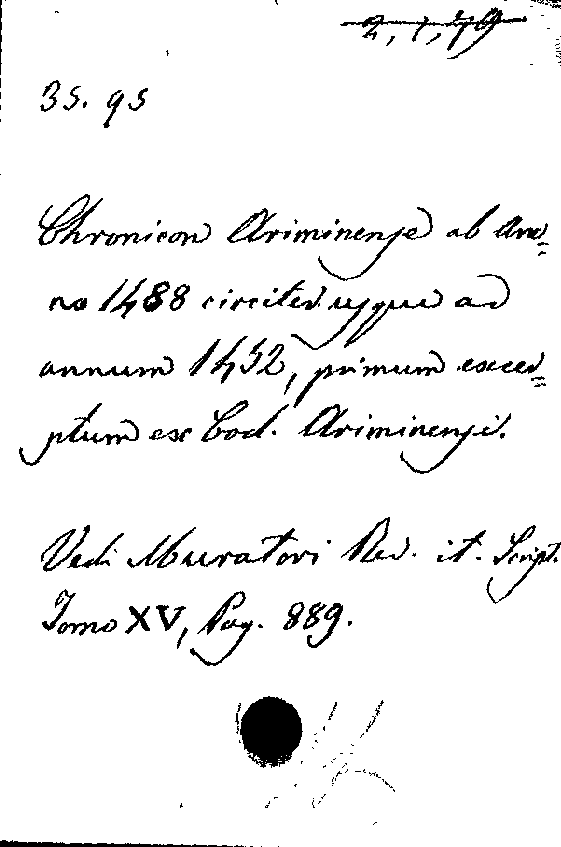 2, 1, 79
35. 95
Chronicon Ariminense ab An=
no 1488 circiter usque ad
annum 1452, primum excer=
ptum ex Cod. Ariminensi.
Vedi Muratori Rer. it. Script.
Tomo XV, Pag. 889.